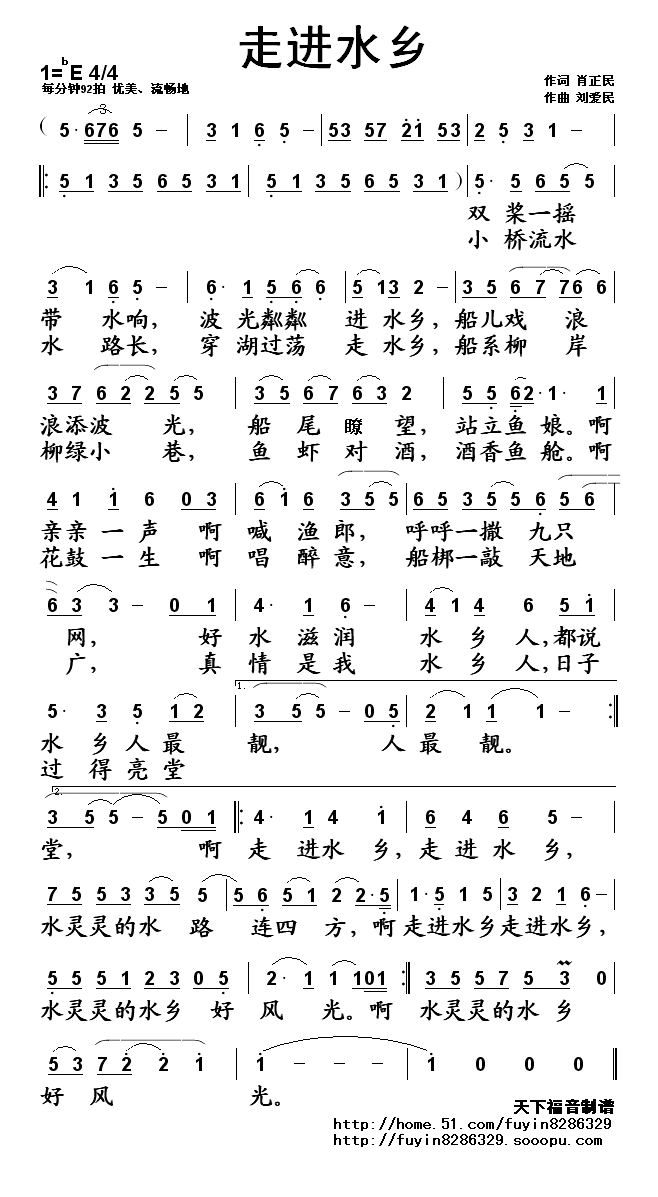 走进水乡
1=ᵇE 4/4
每分钟92拍 优美、流畅地
作词 肖正民
作曲 刘爱民
( 5· 676 5 – | 3 1 6 5 – | 53 57 21 53 | 2 5 3 1 – |
|: 5 1 3 5 6 5 3 1 | 5 1 3 5 6 5 3 1 ) | 5· 5 6 5 5
双 桨一摇
小 桥流水
3 1 6 5 – | 6· 1 5 6 6 | 5 13 2 – | 3 5 6 7 76 6
带 水响, 波 光粼粼 进 水乡, 船儿戏 浪
水 路长, 穿 湖过荡 走 水乡, 船系柳 岸
3 7 6 2 2 5 5 | 3 5 6 7 6 3 2 | 5 5 6 2· 1· 1
浪添波 光, 船 尾 瞭 望, 站立鱼 娘。啊
柳绿小 巷, 鱼 虾 对 酒, 酒香鱼 舱。啊
4 1 1 6 0 3 | 6 1 6 3 5 5 | 6 5 3 5 5 6 5 6
亲亲 一 声 啊 喊 渔 郎, 呼呼一撒 九只
花鼓 一 生 啊 唱 醉 意, 船梆一敲 天地
6 3 3 – 0 1 | 4· 1 6 – | 4 1 4 6 5 1
网, 好 水 滋 润 水 乡 人,都说
广, 真 情 是 我 水 乡 人,日子
1.
5· 3 5 1 2 | 3 5 5 – 0 5 | 2 1 1 1 – :|
水 乡 人 最 靓, 人 最 靓。
过 得 亮 堂
2.
3 5 5 – 5 0 1 |: 4· 1 4 1 | 6 4 6 5 –
堂, 啊 走 进水 乡, 走 进 水 乡,
7 5 5 3 3 5 5 | 5 6 5 1 2 2·5 | 1·5 1 5 | 3 2 1 6 –
水灵灵的水 路 连四 方, 啊走进水乡走进水乡,
5 5 5 1 2 3 0 5 | 2· 1 1 101 :| 3 5 5 7 5 3 0
水灵灵的水乡 好 风 光。啊 水灵灵的水 乡
5 3 7 2 2 1 | 1 – – – | 1 0 0 0 ||
好 风 光。
天下福音制谱
http://home.51.com/fuyin8286329
http://fuyin8286329.sooopu.com